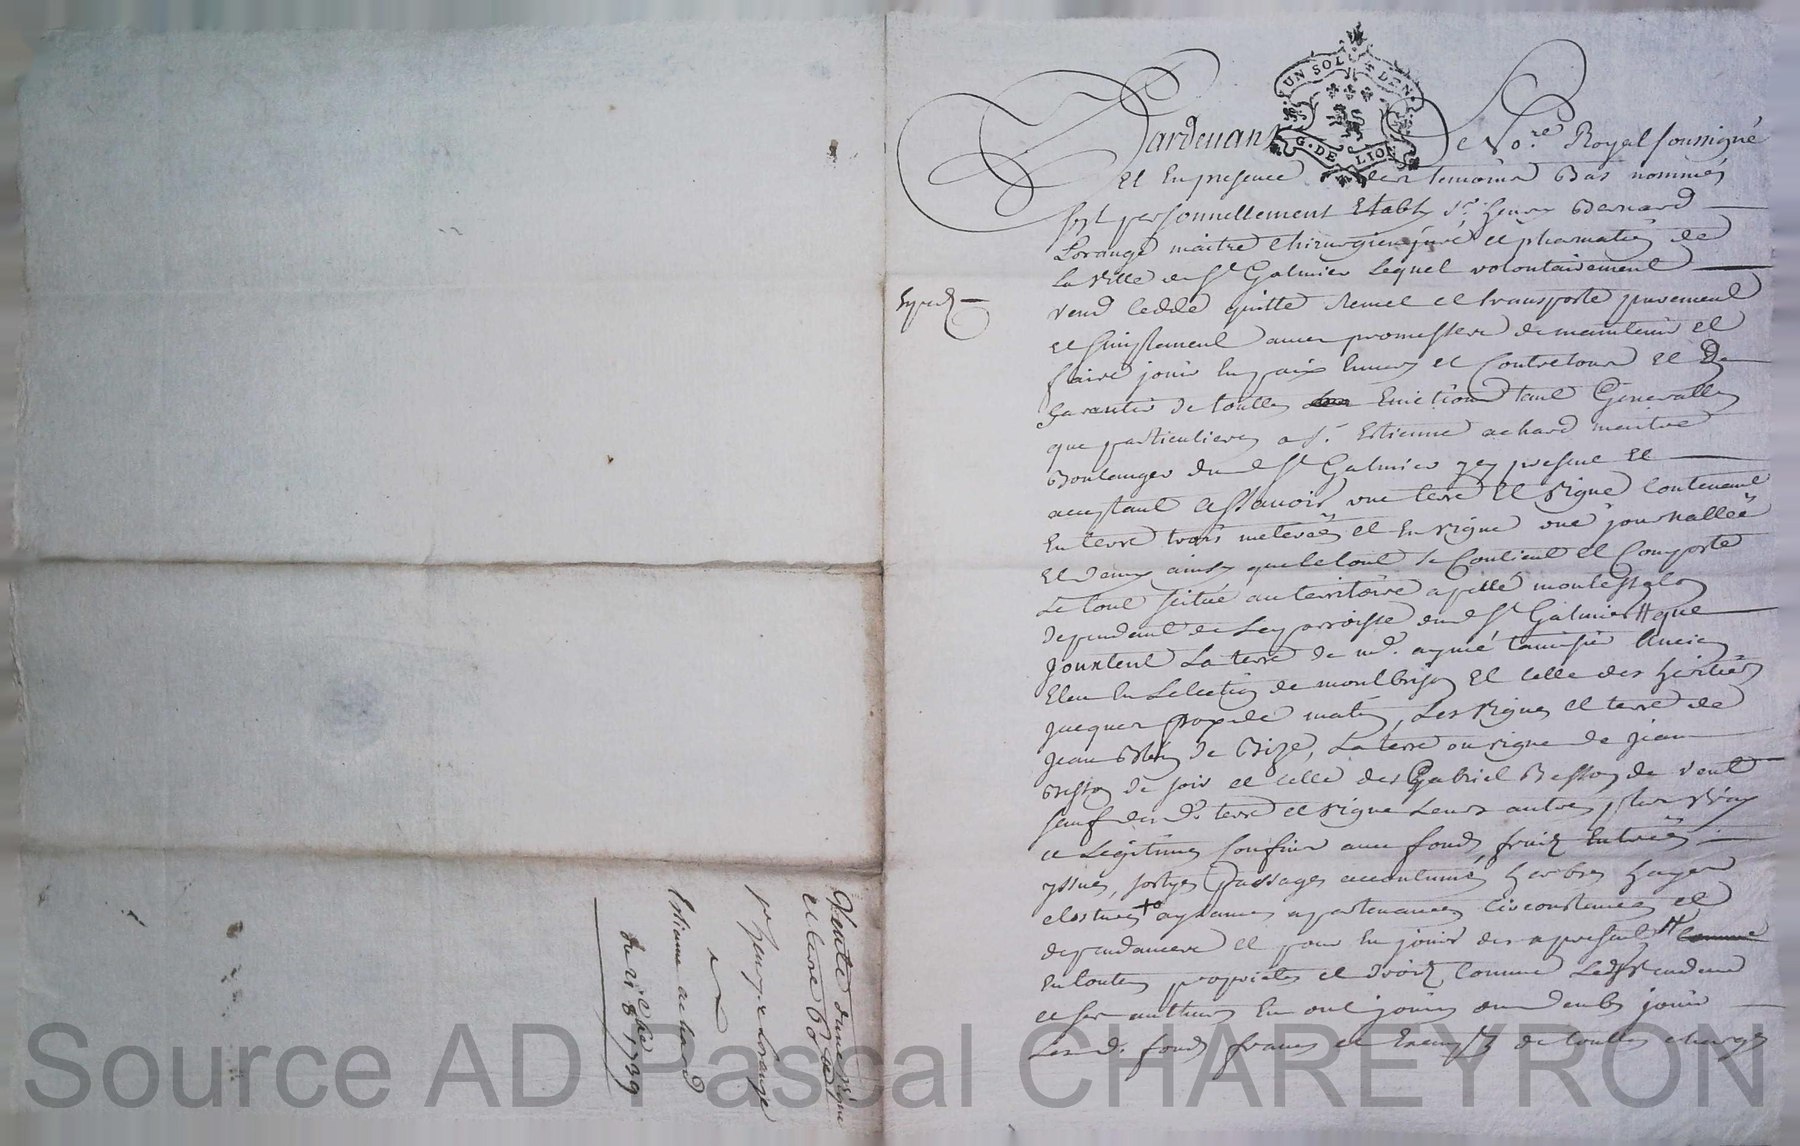 UN SOL 4 DEN.
G. DE LION
Pardevant Le No.re Royal soussigné
Et En presence des temoins Bas nommés
fut personnellement Etably Sr. henry Bernard
Lorange maitre chirurgien juré et pharmatien de
La Ville de St Galmier Lequel volontairement
vend cedde quitte Remet et transporte purement
et simplement avec promesse de maintenir et
faire jouir En paix Envers et Contre tous et De
Garantir de toutte Eviction tant Generalle
que particuliere a Sr. Estienne achard maitre
Boulanger du d St Galmier icy present Et
acceptant assavoir une terre Et vigne Contenant
En terre trois meterées et En vigne une journallée
Et demy ainsy que le tout se Contient et Comporte
Le tout scitué au territoire apellé
dependant de La parroisse du d St Galmier que
jouxtent La terre de md. aymé tamisié Ancien
Eleu En Lelection de montbrison Et celle des heritiers
jacques de matin, Les vignes et terre de
jean de Bize, La terre ou vigne de jean
Besson de soir et celle de Gabriel Besson de vent
sauf des d. terre et vigne Leurs autres plus vrays
et Legitimes Confins avec fonds, fruits Entrées
yssues, sortyes passages accoutumés herbes hayes
clostures aysances apartenances Circonstances et
dependances et pour En jouir des a present
En toutes proprietés et droits Comme Led vendeur
et ses autheurs En ont jouis ou deub jouir
Les d. fonds francs et Exempts de touttes charges
Exped.
Vente dune vigne
et terre 60
pr henry Lorange
a
Estienne achard
du 21 8bre 1739
Source AD Pascal CHAREYRON